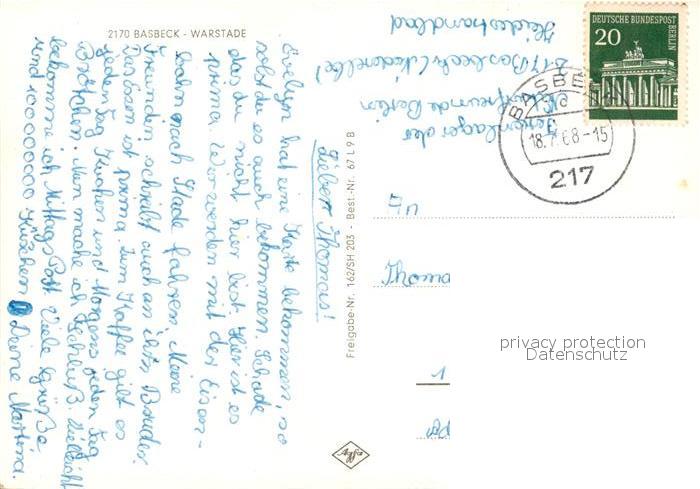 2170 BASBECK - WARSTADE
Lieber Thomas!
Evelyn hat eine Karte bekommen, so
solst du es auch bekommen. Schade
das du nicht hier bist. Hier ist es
prima. Wir werden mit der Eisen-
bahn nach Stade fahren. Meine
Freundin schreibt auch an ihren Bruder.
Das Essen ist prima. Zum Kaffee gibt es
jeden Tag Kuchen und Morgens jeden Tag
Brötchen. Nun mache ich Schluß. Vielleicht
bekomme ich Mittags Post. Viele Grüße
und 100000000 Küßchen Deine Martina.
Freigabe-Nr. 162/SH 203 - Best.-Nr. 67 L 9 B
Agfa
Ferienlager der
Naturfreunde Berlin
217 Basbeck (Niederelbe)
Heidestrandbad
DEUTSCHE BUNDESPOST
BERLIN
20
BASBECK
18.7.68-15
217
Thoma
1
privacy protection
Datenschutz